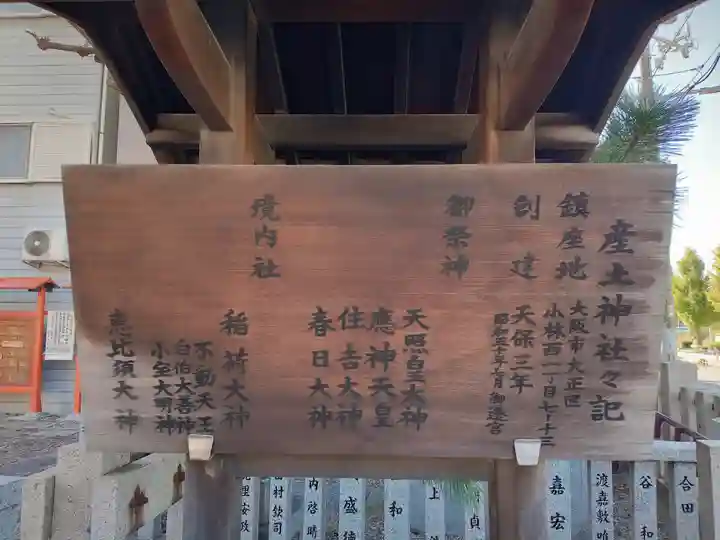 産土神社々記
鎮座地
大阪市大正区
小林西一丁目七ノ十三
創建
天保三年
昭和五十年十月御遷宮
御祭神
天照皇大神
應神天皇
住吉大神
春日大神
境内社
稲荷大神
不動天王
白伯大善神
小宝大明神
恵比須大神
合田
谷和
渡嘉敷唯
嘉宏
貞
上
和
盛德
内啓晴
村欽司
里安政